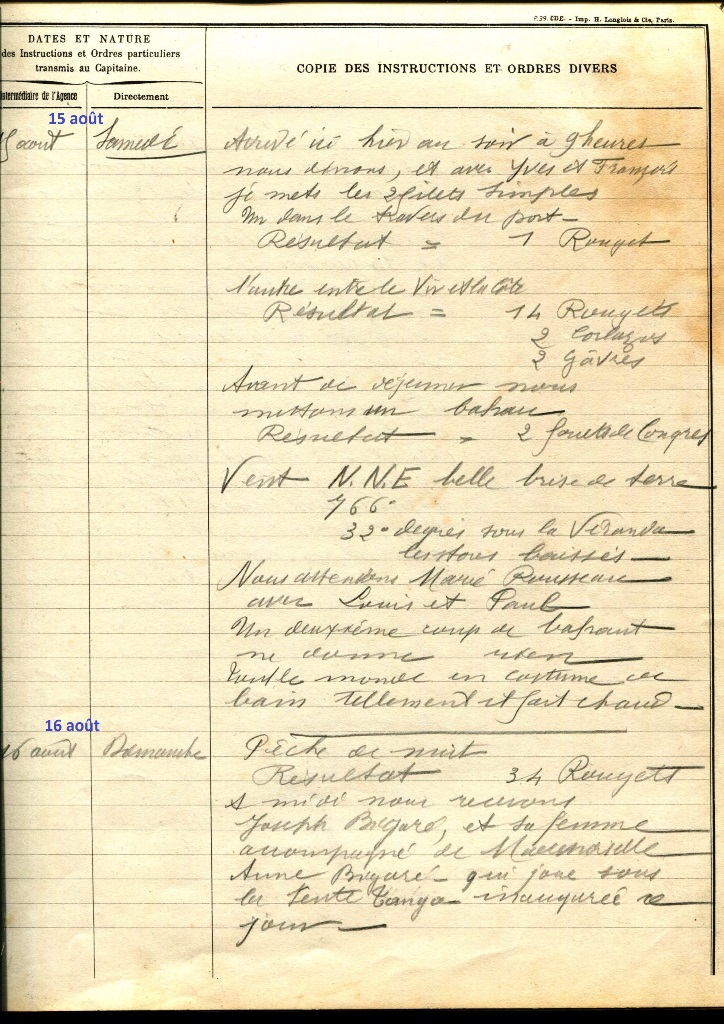 P.39. CDE. - Imp. H. Longlois & Cie, Paris.
DATES ET NATURE
des Instructions et Ordres particuliers
transmis au Capitaine.
COPIE DES INSTRUCTIONS ET ORDRES DIVERS
Intermédiaire de l'Agence
Directement
15 août
15 aout Samedi
Arrivé ici hier au soir à 9 heures
nous dinons, et avec Yves et François
je mets les 2 filets simples
Un dans le travers du port -
Résultat = 1 Rouget
l'autre entre le Vir et la Côte
Résultat = 14 Rougets
2
2 Gâvres
Avant de déjeuner nous
mettons un bahau
Résultat = 2 fouets de Congres
Vent N.N.E belle brise de terre
766°
32° degrés sous la Véranda
les stores baissés -
Nous attendons Marie Rousseau
avec Louis et Paul
Un deuxième coup de
ne donne rien
tout le monde en costume de
bain tellement il fait chaud -
16 août
16 aout Dimanche
Pêche de nuit
Résultat 34 Rougets
A midi nous recevons
Joseph Bigaré, et sa femme
accompagné de Mademoiselle
Anne Bigaré - qui joue sous
la tente Tanga inaugurée ce
jour